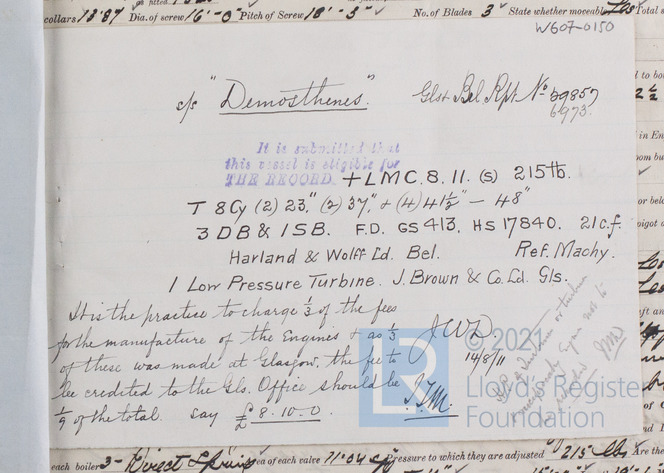 collars 13'87 Dia. of screw 16'-0" Pitch of Screw 18'-3" No. of Blades 3 State whether moveable Yes Total
W607-0150
c/s "Demosthenes". Glst Bel Rpt No 39857
6973.
It is submitted that
this vessel is eligible for
THE RECORD. + LMC. 8. 11. (s) 215 lb.
T 8 Cy (2) 23", (2) 37", & (4) 41½" - 48"
3 DB & 1 SB. F.D. GS 413, HS 17840. 21 c.f.
Harland & Wolff Ld. Bel. Ref. Machy.
1 Low Pressure Turbine. J. Brown & Co. Ld. Gls.
It is the practice to charge ⅓ of the fees
for the manufacture of the Engines & as ⅓
of these was made at Glasgow, the fee to
be credited to the Gls. Office should be
1/9 of the total. say £ 8.10.0.
J.W.D.
14/8/11
J.J.M.
© 2021
LR
Lloyd's Register
Foundation
each boiler 3 - Direct Spring area of each valve 11.04 Pressure to which they are adjusted 215 lbs Are the